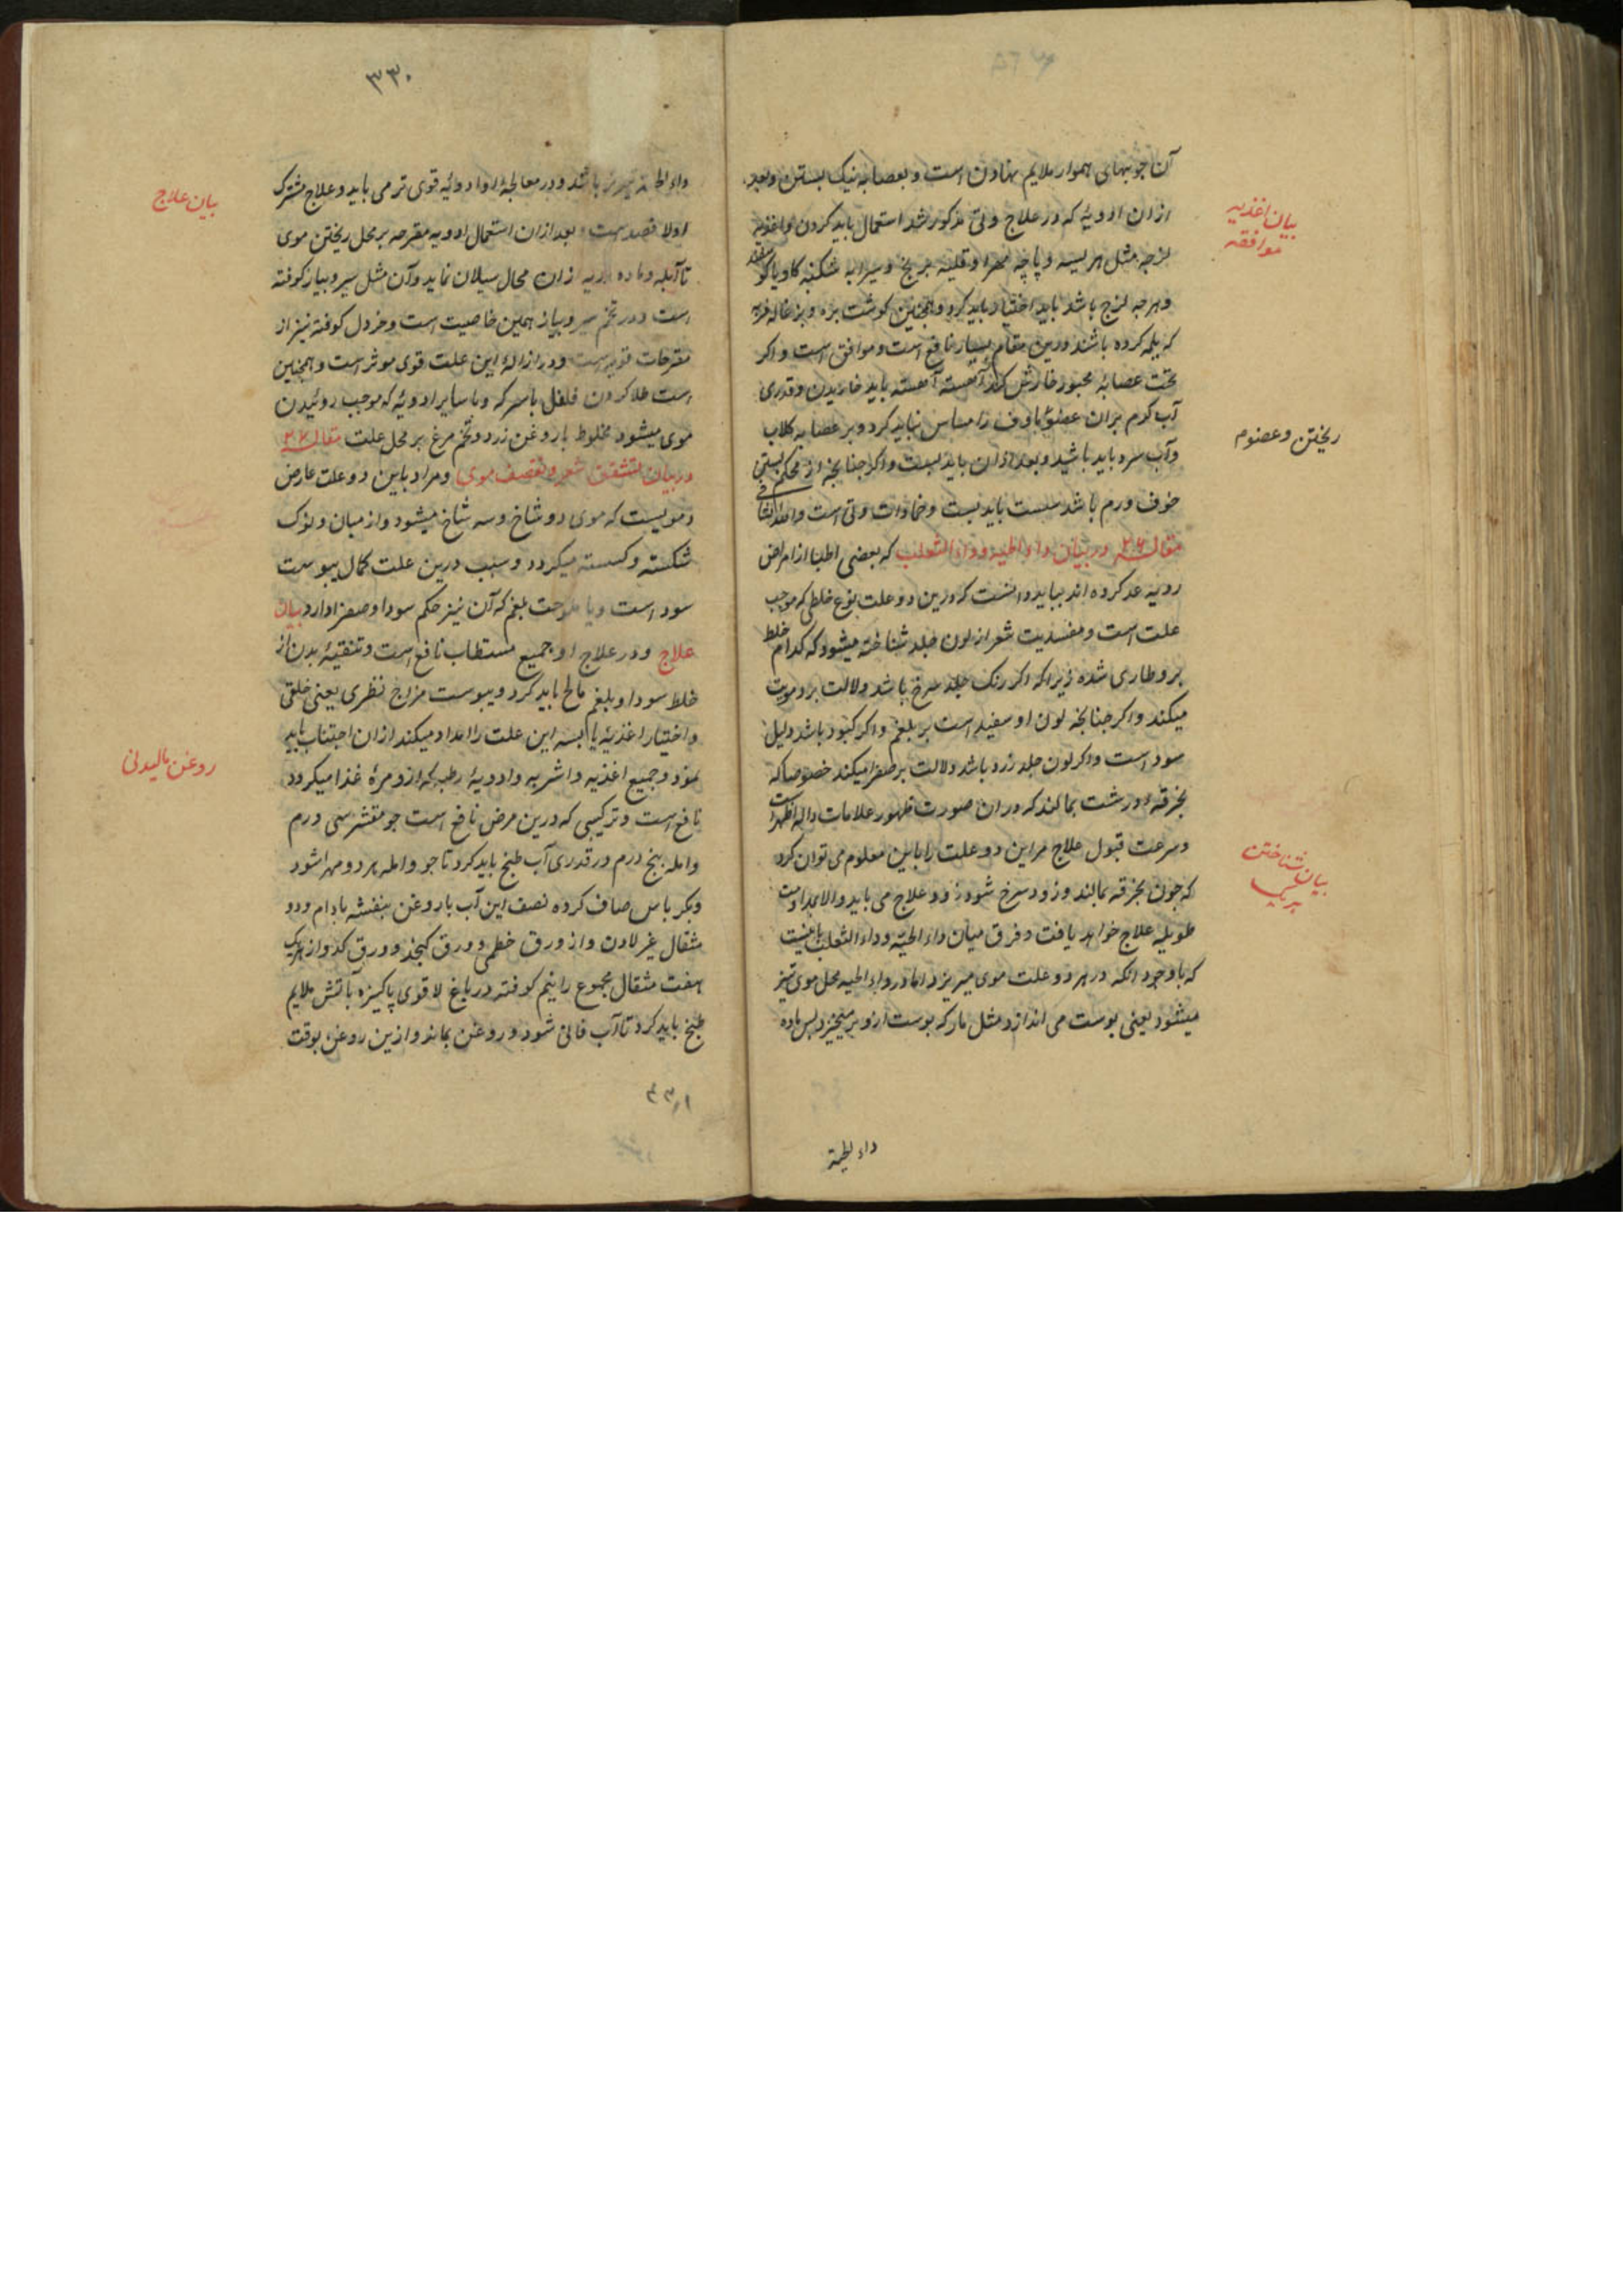 آن چوبهای هموار ملایم نهادن است و بعصابه نیک بستن و بعد
ازان ادویهٔ که در علاج وثی مذکور شد استعمال باید کردن و اغذیهٔ
بیان اغذیه
موافقه
لزجه مثل هریسه و پاچه مهرا و قلیه برنج و سیرابه شکنبه کاو یا کوسفند
و هرچه لزج باشد باید اختیار باید کرد و همچنین کوشت بره و بزغاله فربه
که یلمه کرده باشند درین مقام بسیار نافع است و موافق است و اکر
تحت عصابهٔ مجبور خارش کند آهسته آهسته باید خاریدن و قدری
آب کرم بران عضو ماوف را مساس نباید کرد و بر عصابه کلاب
ریختن و عضوم
وآب سرد باید پاشید و بعد ازان باید بست و اکر چنانچه از محکم بستن
خوف ورم باشد سست باید بست و ضمادات وثی است والله الشافی
مقاله ۲۶ در بیان داء الحیه و داء الثعلب که بعضی اطبا از امراض
ردیه عد کرده اند بباید دانست که درین دو علت نوع خلطی که موجب
علت است و مفسدیت شعر از لون جلد شناخته میشود که کدام خلط
برو طاری شده زیرا که اکر رنک جلد سرخ باشد دلالت بر دمویت
میکند و اکر چنانچه لون او سفید است بر بلغم و اکر کبود باشد دلیل
سودا است و اکر لون جلد زرد باشد دلالت بر صفرا میکند خصوصا که
بخرقهٔ درشت بمالند که دران صورت ظهور علامات داله اظهر است
و سرعت قبول علاج مر این دو علت را باین معلوم می توان کرد
بیان شناختن
که چون بخرقه بمالند و زود سرخ شود زود علاج می یابد والا بمداومت
طویله علاج خواهد یافت و فرق میان داء الحیّه و داء الثعلب باینست
که با وجود انکه در هر دو علت موی میریزد اما در داء الحیه محل موی نیز
میشود یعنی پوست می اندازد مثل مار که پوست ازو بر میخیزد پس ماده
داء الحیة
۳۳۰
داء الحیه باشد و در معالجهٔ او ادویهٔ قوی تر می باید و علاج مشترک
بیان علاج
اولا فصد است و بعد ازان استعمال ادویه مقرحه بر محل ریختن موی
تا آبله و ماده ردیه ازان محال سیلان نماید و آن مثل سیر و پیاز کوفته
است و در تخم سیر و پیاز همین خاصیت است و خردل کوفته نیز از
مقرحات قویه است و در ازالهٔ این علت قوی موثر است و همچنین
است طلا کردن فلفل با سرکه و با سایر ادویهٔ که موجب روئیدن
موی میشود مخلوط با روغن زرد و تخم مرغ بر محل علت مقاله ۲۷
در بیان تشقق شعر و تقصف موی و مراد باین دو علت عارض
دمویست که موی دو شاخ و سه شاخ میشود و از میان و نوک
شکسته و کسسته میکردد و سبب درین علت کمال یبوست
سودا است و یا ملوحت بلغم که آن نیز حکم سودا و صفرا دارد بیان
علاج و در علاج او جمیع مستطاب نافع است و تنقیهٔ بدن از
خلط سودا و بلغم مالح باید کرد و یبوست مزاج فطری یعنی خلقی
و اختیار اغذیهٔ یابسه این علت را امداد میکند ازان اجتناب باید
روغن مالیدنی
نمود و جمیع اغذیه و اشربه و ادویهٔ رطبه که ازو مرهٔ غذا میکردد
نافع است و ترکیبی که درین مرض نافع است جو مقشر سی درم
و امله پنج درم در قدری آب طبخ باید کرد تا جو و امله هر دو مهرا شود
و بکرباس صاف کرده نصف این آب با روغن بنفشه بادام و دو
مثقال لادن و از ورق خطمی و ورق کنجد و ورق کدو از هر یک
هفت مثقال مجموع را نیم کوفته در پاتیل پاکیزه باتش ملایم
طبخ باید کرد تا آب فانی شود و روغن بماند و ازین روغن بوقت
۳۳۱